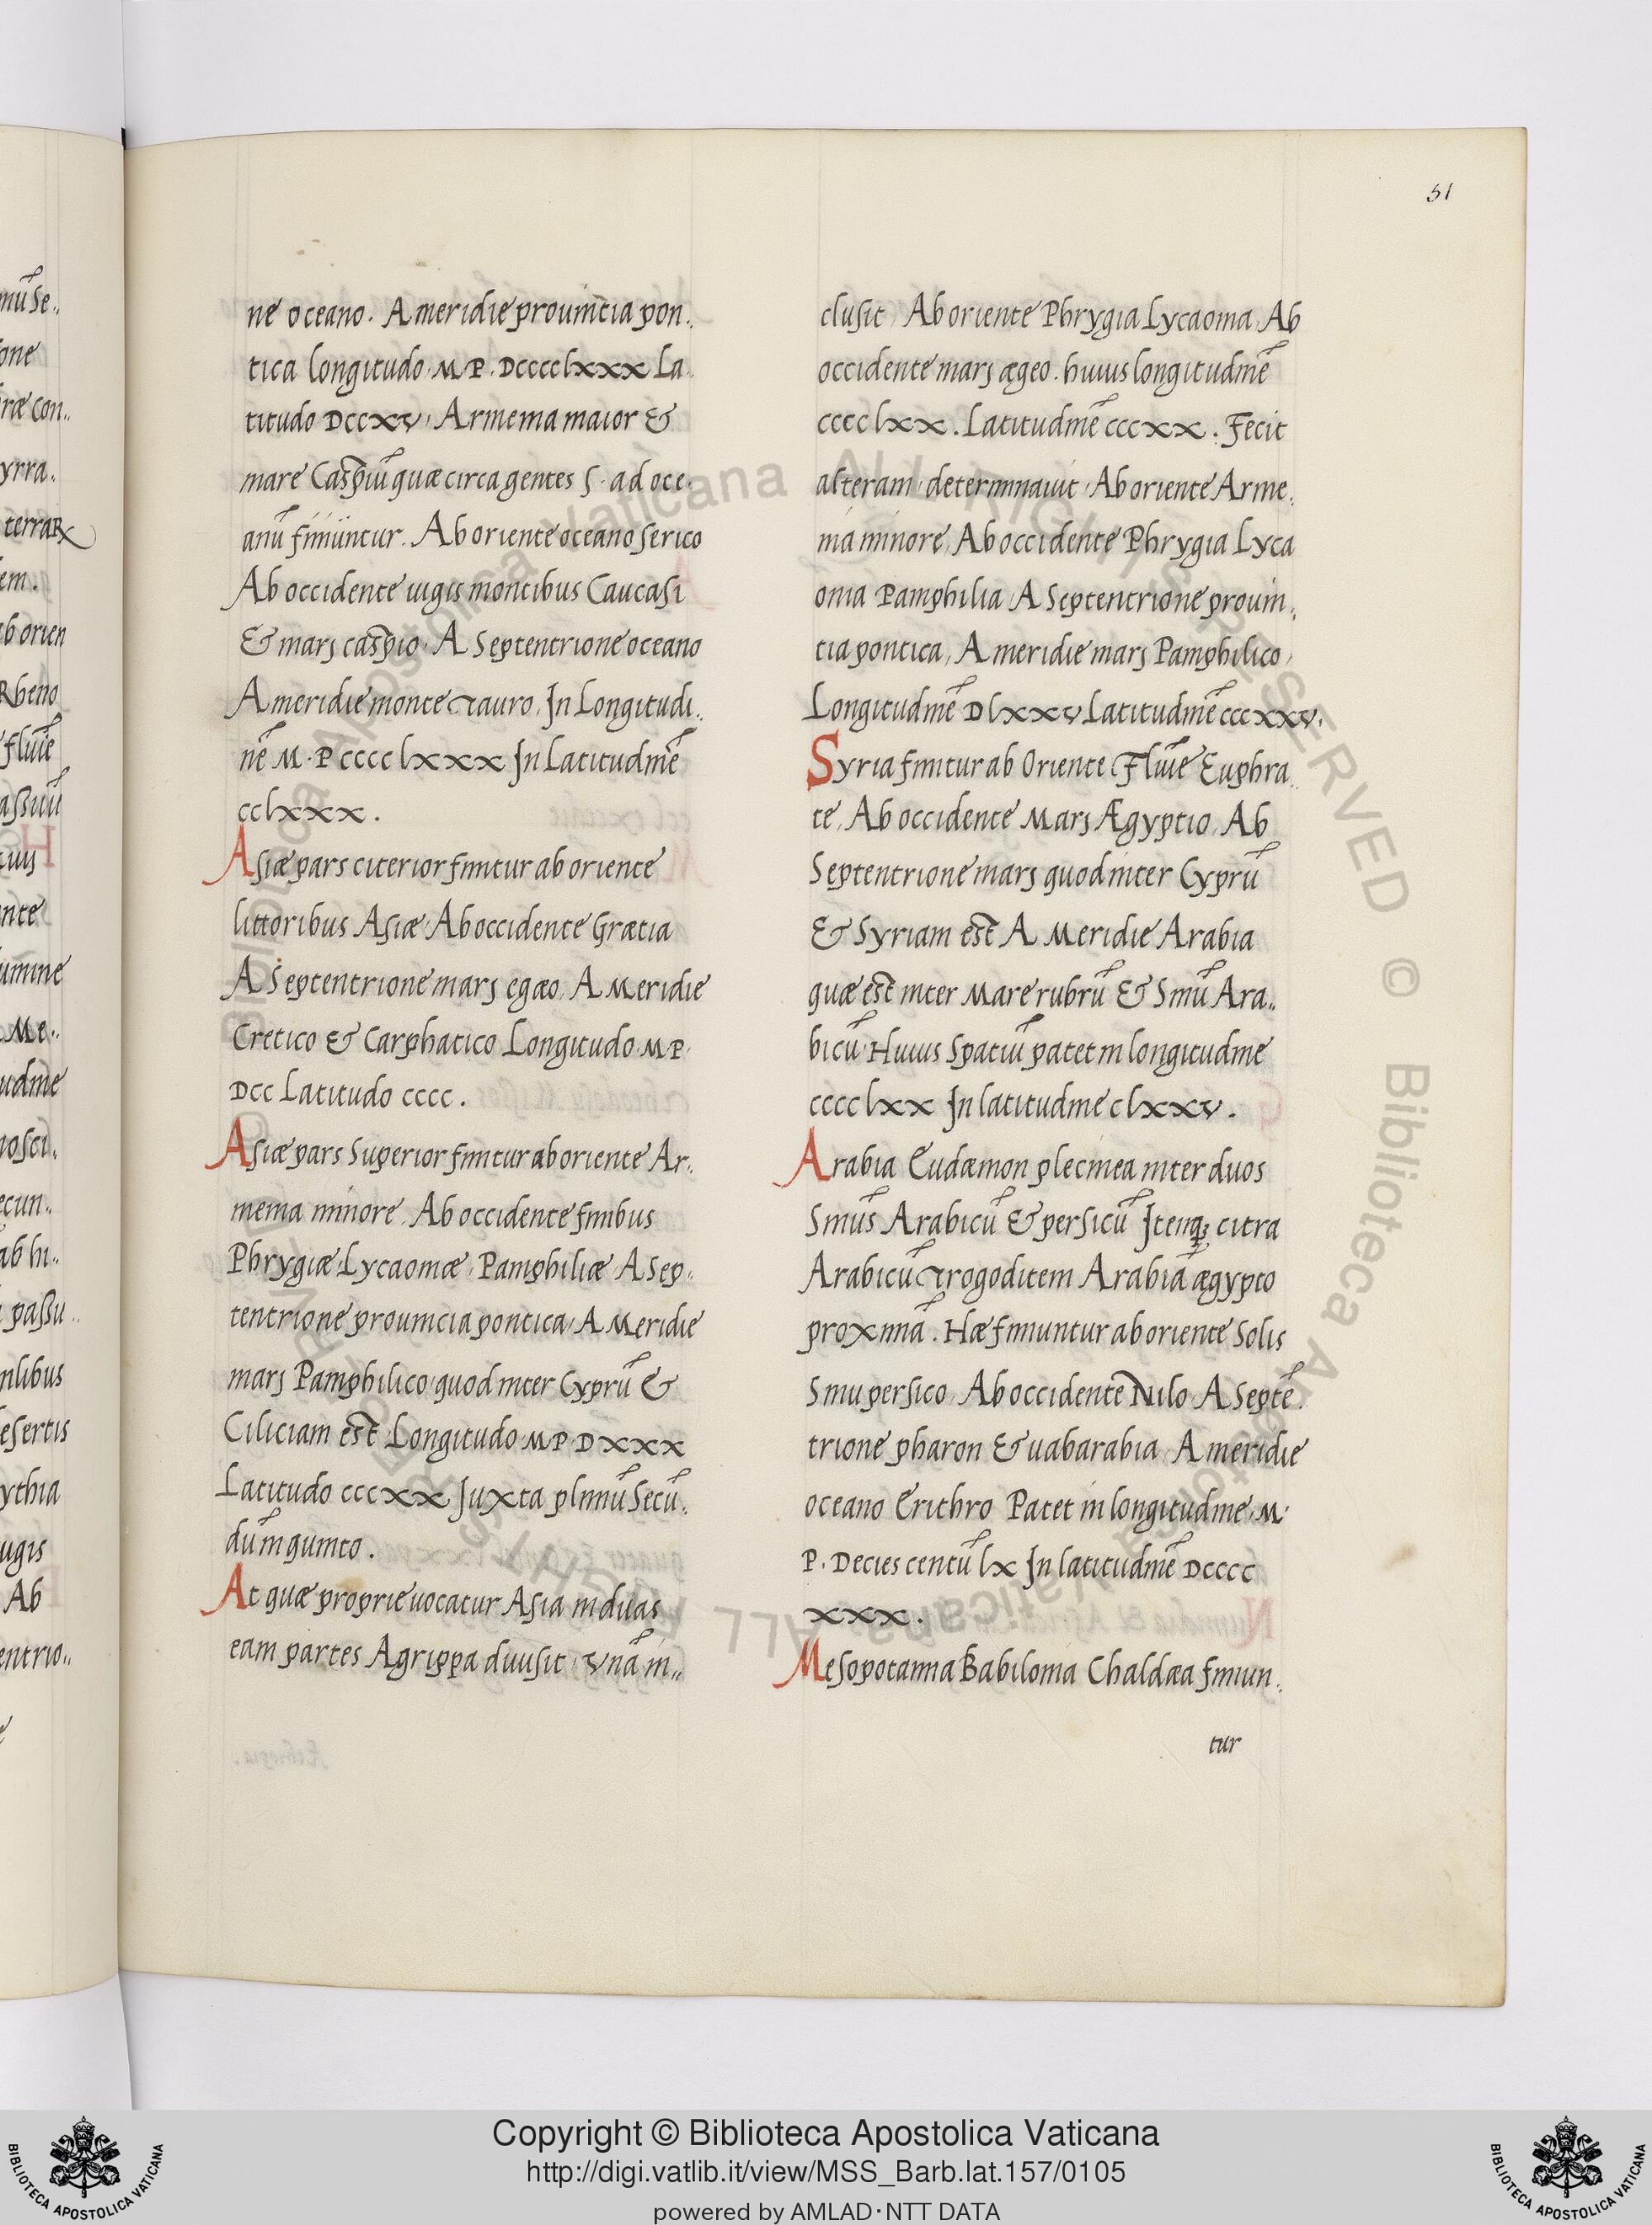 51
ne oceano. A meridie prouintia pon..
tica longitudo. M. P. DCCCClxxx La.
titudo DCCXV, Armenia maior &
mare Caspiū quæ circa gentes S. ad oce.
anū finiuntur. Ab oriente oceano serico
Ab occidente iugis montibus Caucasi
& mari caspio. A Septentrione oceano
A meridie monte Tauro. In Longitudi..
nē M. P CCCClxxx In Latitudinē
cclxxx.
Asiæ pars citerior finitur ab oriente
littoribus Asiæ. Ab occidente Grætia
A Septentrione mari egæo. A Meridie
Cretico & Carphatico Longitudo. M P.
DCC Latitudo cccc.
Asiæ pars Superior finitur ab oriente Ar..
menia minore. Ab occidente finibus
Phrygiæ. Lycaoniæ. Pamphiliæ A Sep..
tentrione prouincia pontica, A Meridie
mari Pamphilico quod inter Cyprū &
Ciliciam est. Longitudo M P. DXXX
Latitudo cccxx Juxta plinnū Secū.
dum quinto.
At quæ proprie uocatur Asia in duas
eam partes Agrippa diuisit. Vnā in..
clusit. Ab oriente Phrygia Lycaonia. Ab
occidente mari ægeo. huius longitudinē
cccclxx. Latitudinē cccxx. Fecit
alteram, determinauit. Ab oriente Arme.
nia minore. Ab occidente Phrygia Lyca
onia Pamphilia. A Septentrione prouin.
tia pontica, A meridie mari Pamphilico,
Longitudinē DlxxV Latitudinē cccxxV.
Syria finitur ab Oriente Fluīe Euphra.
te. Ab occidente Mari Ægyptio. Ab
Septentrione mari quod inter Cyprū
& Syriam est A Meridie Arabia
quæ est inter Mare rubrū & Sinū Ara..
bicū. Huius Spatiū patet in longitudine
cccclxx In latitudine clxxV.
Arabia Eudæmon plecinea inter duos
Sinūs Arabicū & persicū Itemq; citra
Arabicū Trogoditem Arabia ægypto
proximā. Hæ finiuntur ab oriente Solis
Sinu persico. Ab occidente Nilo. A Septē.
trione pharon & uabarabia. A meridie
oceano Erithro Patet in longitudine, M.
P. Decies centū lx In latitudinē DCCCC
xxx.
Mesopotamia Babilonia Chaldæa finiun.
tur
Copyright © Biblioteca Apostolica Vaticana
http://digi.vatlib.it/view/MSS_Barb.lat.157/0105
powered by AMLAD·NTT DATA